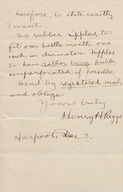 therefore, to state exactly
I want.
Do rubber nipples to
fit over bottle mouth one
inch in diameter. Nipples
to have rather large bulbs,
unperforated if possible
Send by registered mail,
and oblige
Yours truly
Henry H Riggs
Harpoot, Dec 3.